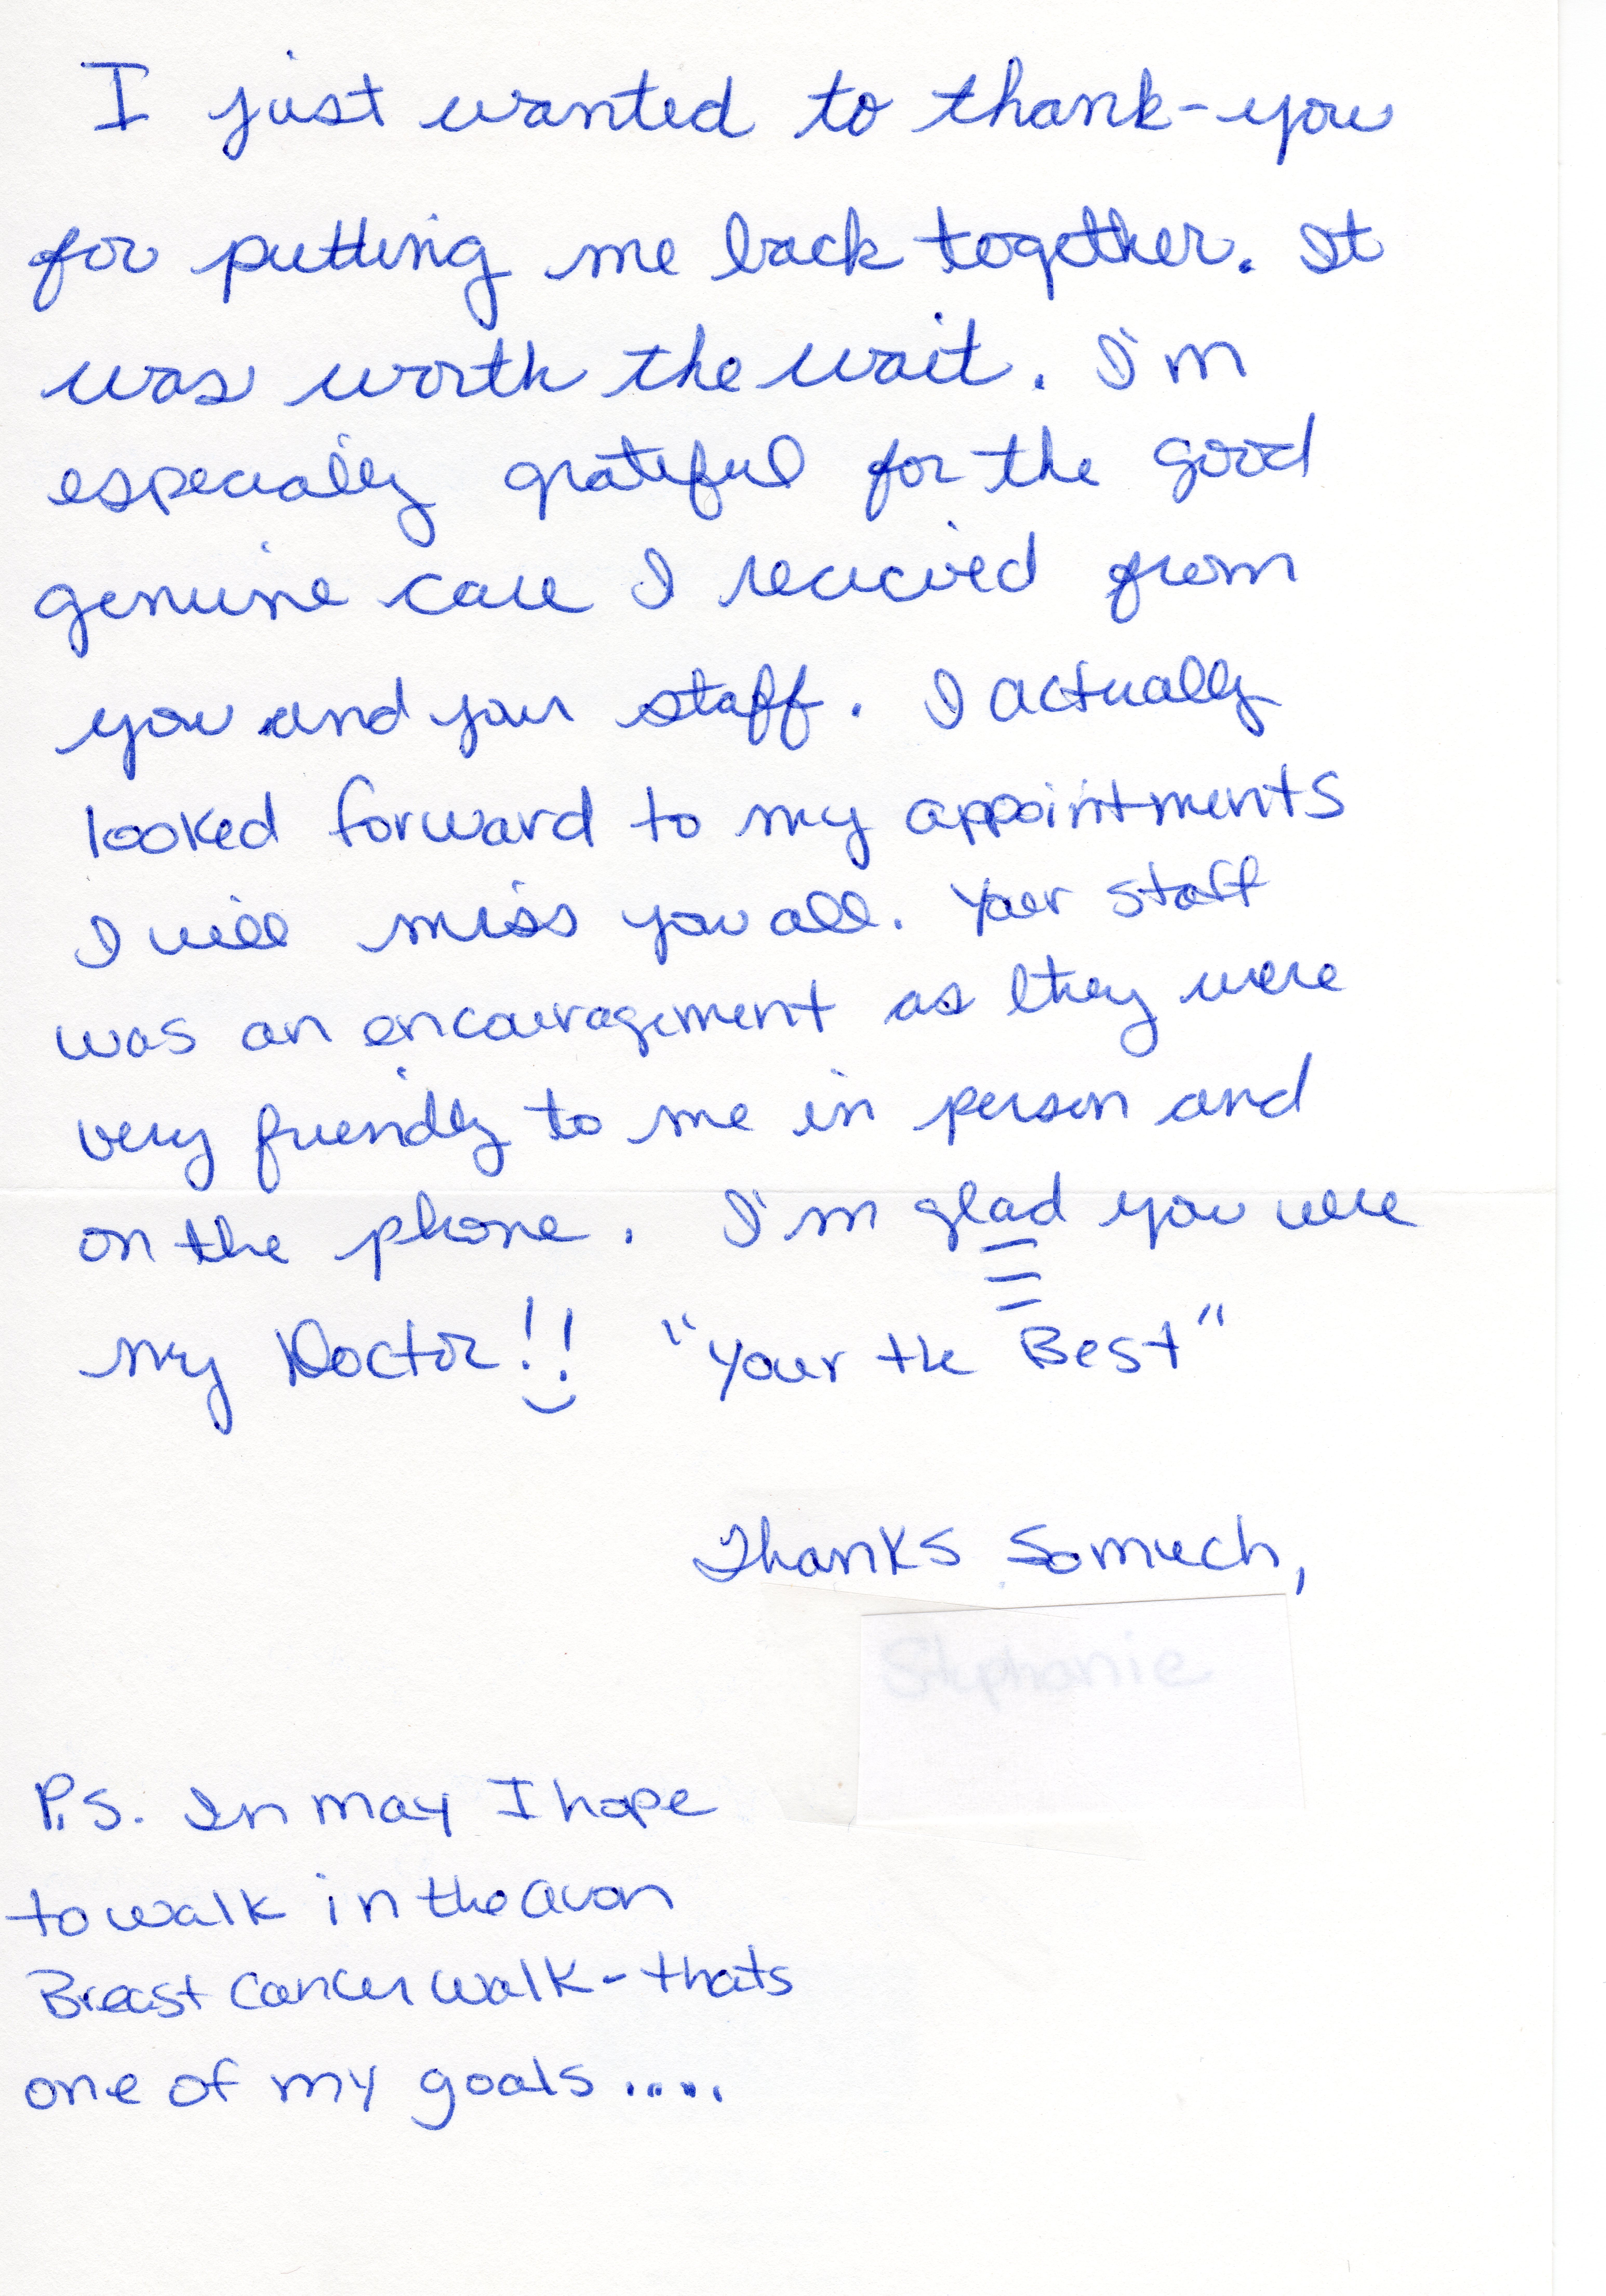 I just wanted to thank-you
for putting me back together. It
was worth the wait. I'm
especially grateful for the good
genuine care I received from
you and your staff. I actually
looked forward to my appointments
I will miss you all. Your staff
was an encouragement as they were
very friendly to me in person and
on the phone. I'm glad you were
my Doctor!! "Your the Best"
Thanks So much,
P.S. In may I hope
to walk in the avon
Breast Cancer walk - thats
one of my goals .....